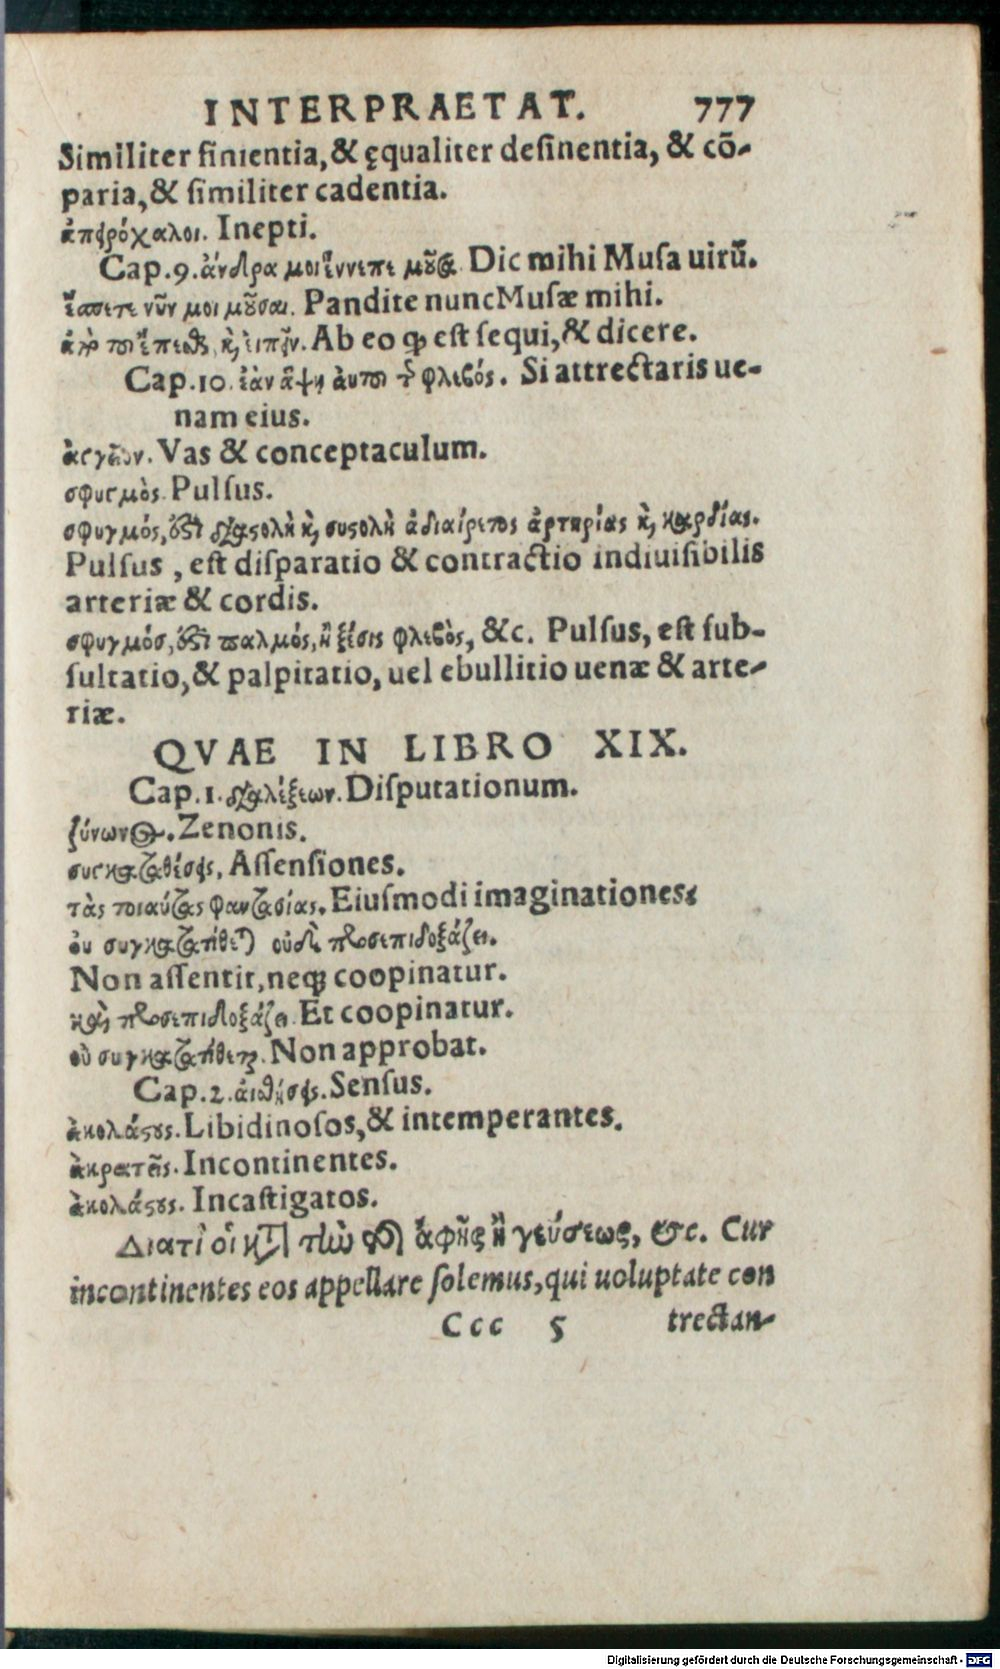 INTERPRAETAT. 777
Similiter finientia, & ęqualiter desinentia, & cō-
paria, & similiter cadentia.
ἀπειρόχαλοι. Inepti.
Cap. 9. ἄνδρα μοι ἔννεπε μοῦσα. Dic mihi Musa uirū.
ἔσπετε νῦν μοι μοῦσαι. Pandite nunc Musæ mihi.
ἀπὸ τοῦ ἕπεσθαι, καὶ εἰπεῖν. Ab eo ꝙ est sequi, & dicere.
Cap. 10. ἐὰν ἅψῃ ἀυτοῦ τῆς φλεβός. Si attrectaris ue-
nam eius.
ἀςγεῖον. Vas & conceptaculum.
σφυςμὸς. Pulsus.
σφυγμός, ἐστὶ διαστολὴ καὶ συστολὴ ἀδιαίρετος ἀρτηρίας καὶ καρδίας.
Pulsus, est disparatio & contractio indiuisibilis
arteriæ & cordis.
σφυγμόσ, ἐστὶ παλμός, ἢ ξέσις φλεβὸς, &c. Pulsus, est sub-
sultatio, & palpitatio, uel ebullitio uenæ & arte-
riæ.
QVAE IN LIBRO XIX.
Cap. 1. διαλέξεων. Disputationum.
ζήνωνος. Zenonis.
συςκαταθέσεις, Assensiones.
τὰς τοιαύτας φαντασίας. Eiusmodi imaginationes:
ου συγκατατίθεται οὐδὲ προσεπιδοξάζει.
Non assentit, neq; coopinatur.
καὶ προσεπιδοξάζει. Et coopinatur.
οὐ συγκατατίθεται. Non approbat.
Cap. 2. ἀιθήσεις. Sensus.
ἀκολάστους. Libidinosos, & intemperantes.
ἀκρατεῖς. Incontinentes.
ἀκολάστους. Incastigatos.
Διατὶ οἱ κατὰ τὴν τῆς ἁφῆς ἢ γεύσεως, &c. Cur
incontinentes eos appellare solemus, qui uoluptate con
Ccc 5 trectan-
Digitalisierung gefördert durch die Deutsche Forschungsgemeinschaft - DFG